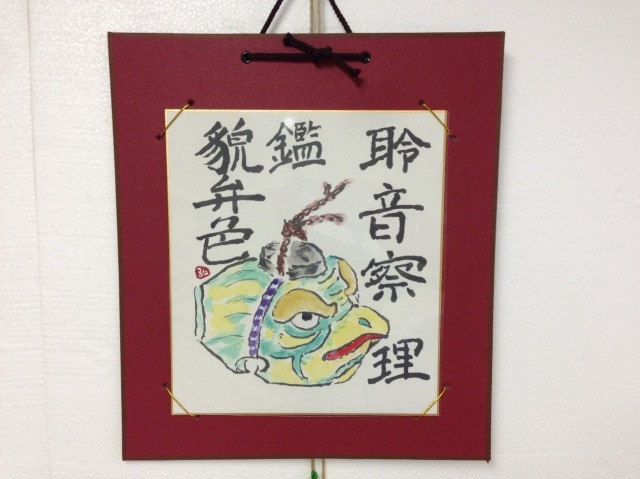 聆音察理
鑑
貌弁色